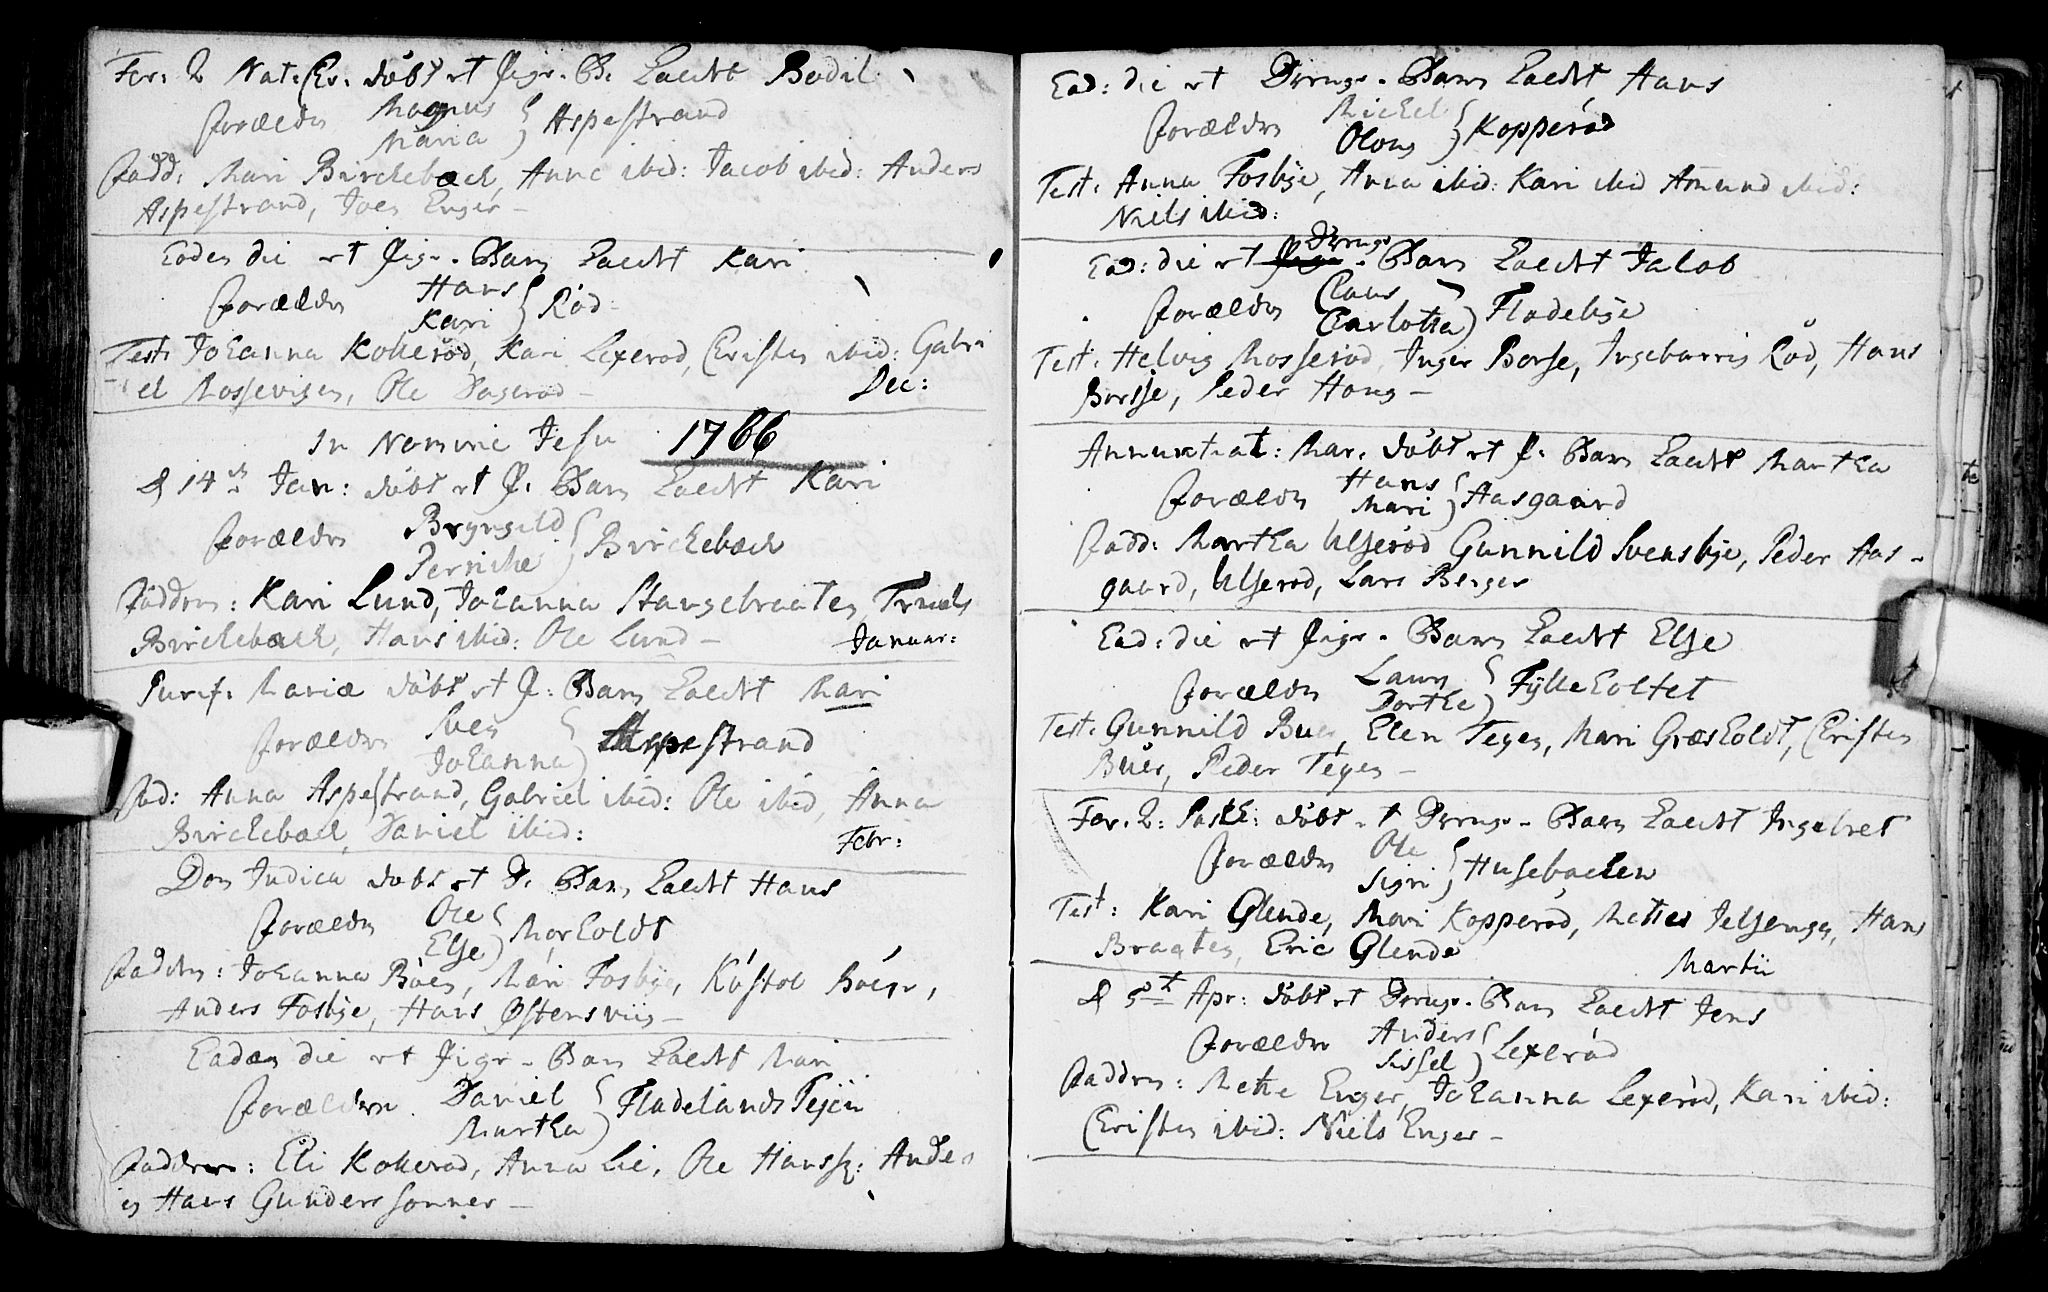 Fer: 2 Nat: Chr. döbt et Pige-B. kaldt Bodil
Forældre Magnus Maria } Aspestrand
Fadd: Mari Birchebæck, Anne ibid: Jacob ibid: Anders
Aspestrand, Joen Enger –
Eoden die et Pige-Barn kaldt Kari
Forældre Hans Kari } Röd
Test: Johanna Kollerød, Kari Lexerød, Christen ibid: Gabri
el Mossevigen, Ole
Dec:
In Nomine Jesu 1766
d 14de Jan: döbt et P. Barn kaldt Kari
Forældre Brynild Pernille } Birchebæck
Faddre: Kari Lund, Johanna Stangebraaten, Truels
Birchebæck, Hans ibid: Ole Lund –
Januar:
Purif: Mariæ döbt et P: Barn kaldt Mari
Forældre Sven Johanna } Aspestrand
Fad: Anna Aspestrand, Gabriel ibid: Ole ibid, Anna
Birchebæck, Daniel ibid:
Febr:
Dom Judica döbt et D. Barn kaldt Hans
Forældre Ole Else } Morholdt
Faddre: Johanna Böen, Mari Fosbye, Köstol
Anders Fosbye, Hans Østensviig –
Eadem die et Pige-Barn kaldt Mari
Forældre Daniel Martha } Fladelands Pejen
Faddrene: Eli Kollerød, Anna Lie, Ole Hanss: Ande
Hans Gunderssønner –
Ead: die et Drenge-Barn kaldt Hans
Forældre Michel Olong } Kopperöd
Test: Anna Fosbye, Anna ibid: Kari ibid Amund ibid:
Niels ibid:
Drenge
Ead: die et Pige-Barn kaldt Jacob
Forældre Claus Charlotha } Fladebye
Test: Helvig Mosserød, Inger Borse, Ingebarrig Röd, Hans
Borse, Peder Houg –
Annuntiat: Mar. döbt et P. Barn kaldt Martha
Forældre Hans Mari } Aasgaard
Fadd: Martha Ulseröd Gunnild Svensbye, Peder Aas-
gaard, Ulseröd, Lars Berger
Ead: die et Pige-Barn kaldt Else
Forældre Laurs Dorthe } Fylleholtet
Test: Gunnild Buer, Elen Tegen, Mari Græsholdt, Christen
Buer, Peder Tegen –
Fer. 2: Pasch: döbt et Drenge-Barn kaldt Ingebret
Forældre Ole Sigri } Husebachen
Test: Kari Glende, Mari Kopperöd, Mette, Hans
Braaten, Eric Glende
Martii
d 5t Apr: döbt et Drenge-Barn kaldt Jens
Forældre Anders Sissel } Lexeröd
Faddre: Mette Enger, Johanna Lexeröd, Kari ibid:
Christen ibid: Niels Enger –